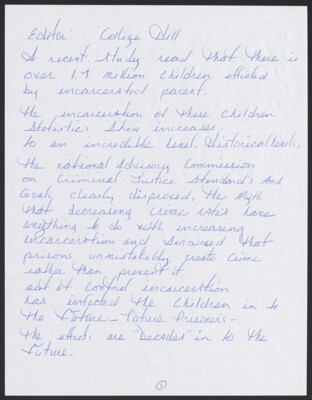 Editor: College Hill
A recent study read that there is
over 1.7 million children effected
by incarcerated parent.
The incarceration of these children
Statistics show increases.
to an incredible level. Historical levels,
The national advisory Commission
on Criminal Justice Standards and
Goals, clearly disproved, the Myth
that decreasing Crime rates have
anything to do with increasing
incarceration and that
prisons unmistakably create Crime
rather than prevent it
out of control incarceration
has infected the Children in to
the Future - Future Prisoners -
the effects are "Decades" in to the
Future.
1